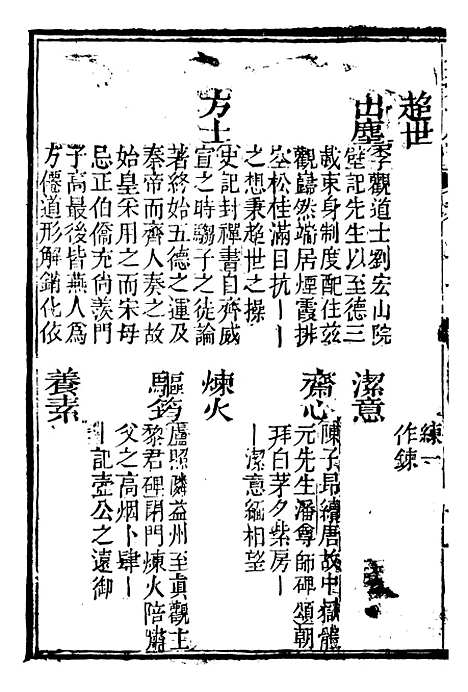 趍世
出塵
李觀道士劉宏山院
壁記先生以至德三
載東身制度配住兹
觀巋然端居煙霞排
空松桂滿目抗丨丨
之想秉趍世之操
方士
史記封禪書自齊威
宣之時騶子之徒論
著終始五德之運及
秦帝而齊人奏之故
始皇采用之而宋毋
忌正伯僑充尚羨門
子高最後皆燕人為
方僊道形解銷化依
練一
作鍊
潔意
齋心
陳子昂續唐故中嶽體
元先生潘尊師碑頌朝
拜白茅夕柴房丨
丨潔意緬相望
煉火
驅筠
盧照隣益州至真觀主
黎君碑閉門煉火陪
父之高烟卜肆丨
丨記壺公之遠御
養素